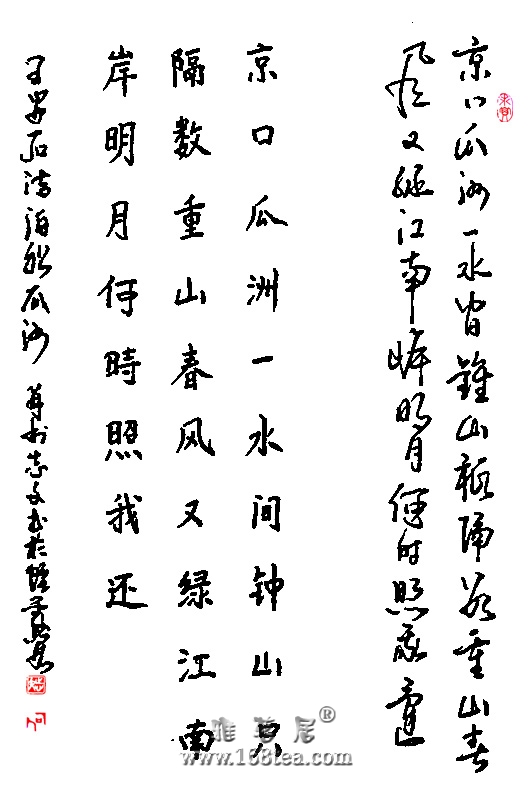 京口瓜洲一水间鍾山祗隔数重山春
风又绿江南岸明月何时照我还
京口瓜洲一水间钟山只
隔数重山春风又绿江南
岸明月何時照我还
王安石诗泊船瓜洲
雅茗居®
www.168tea.com